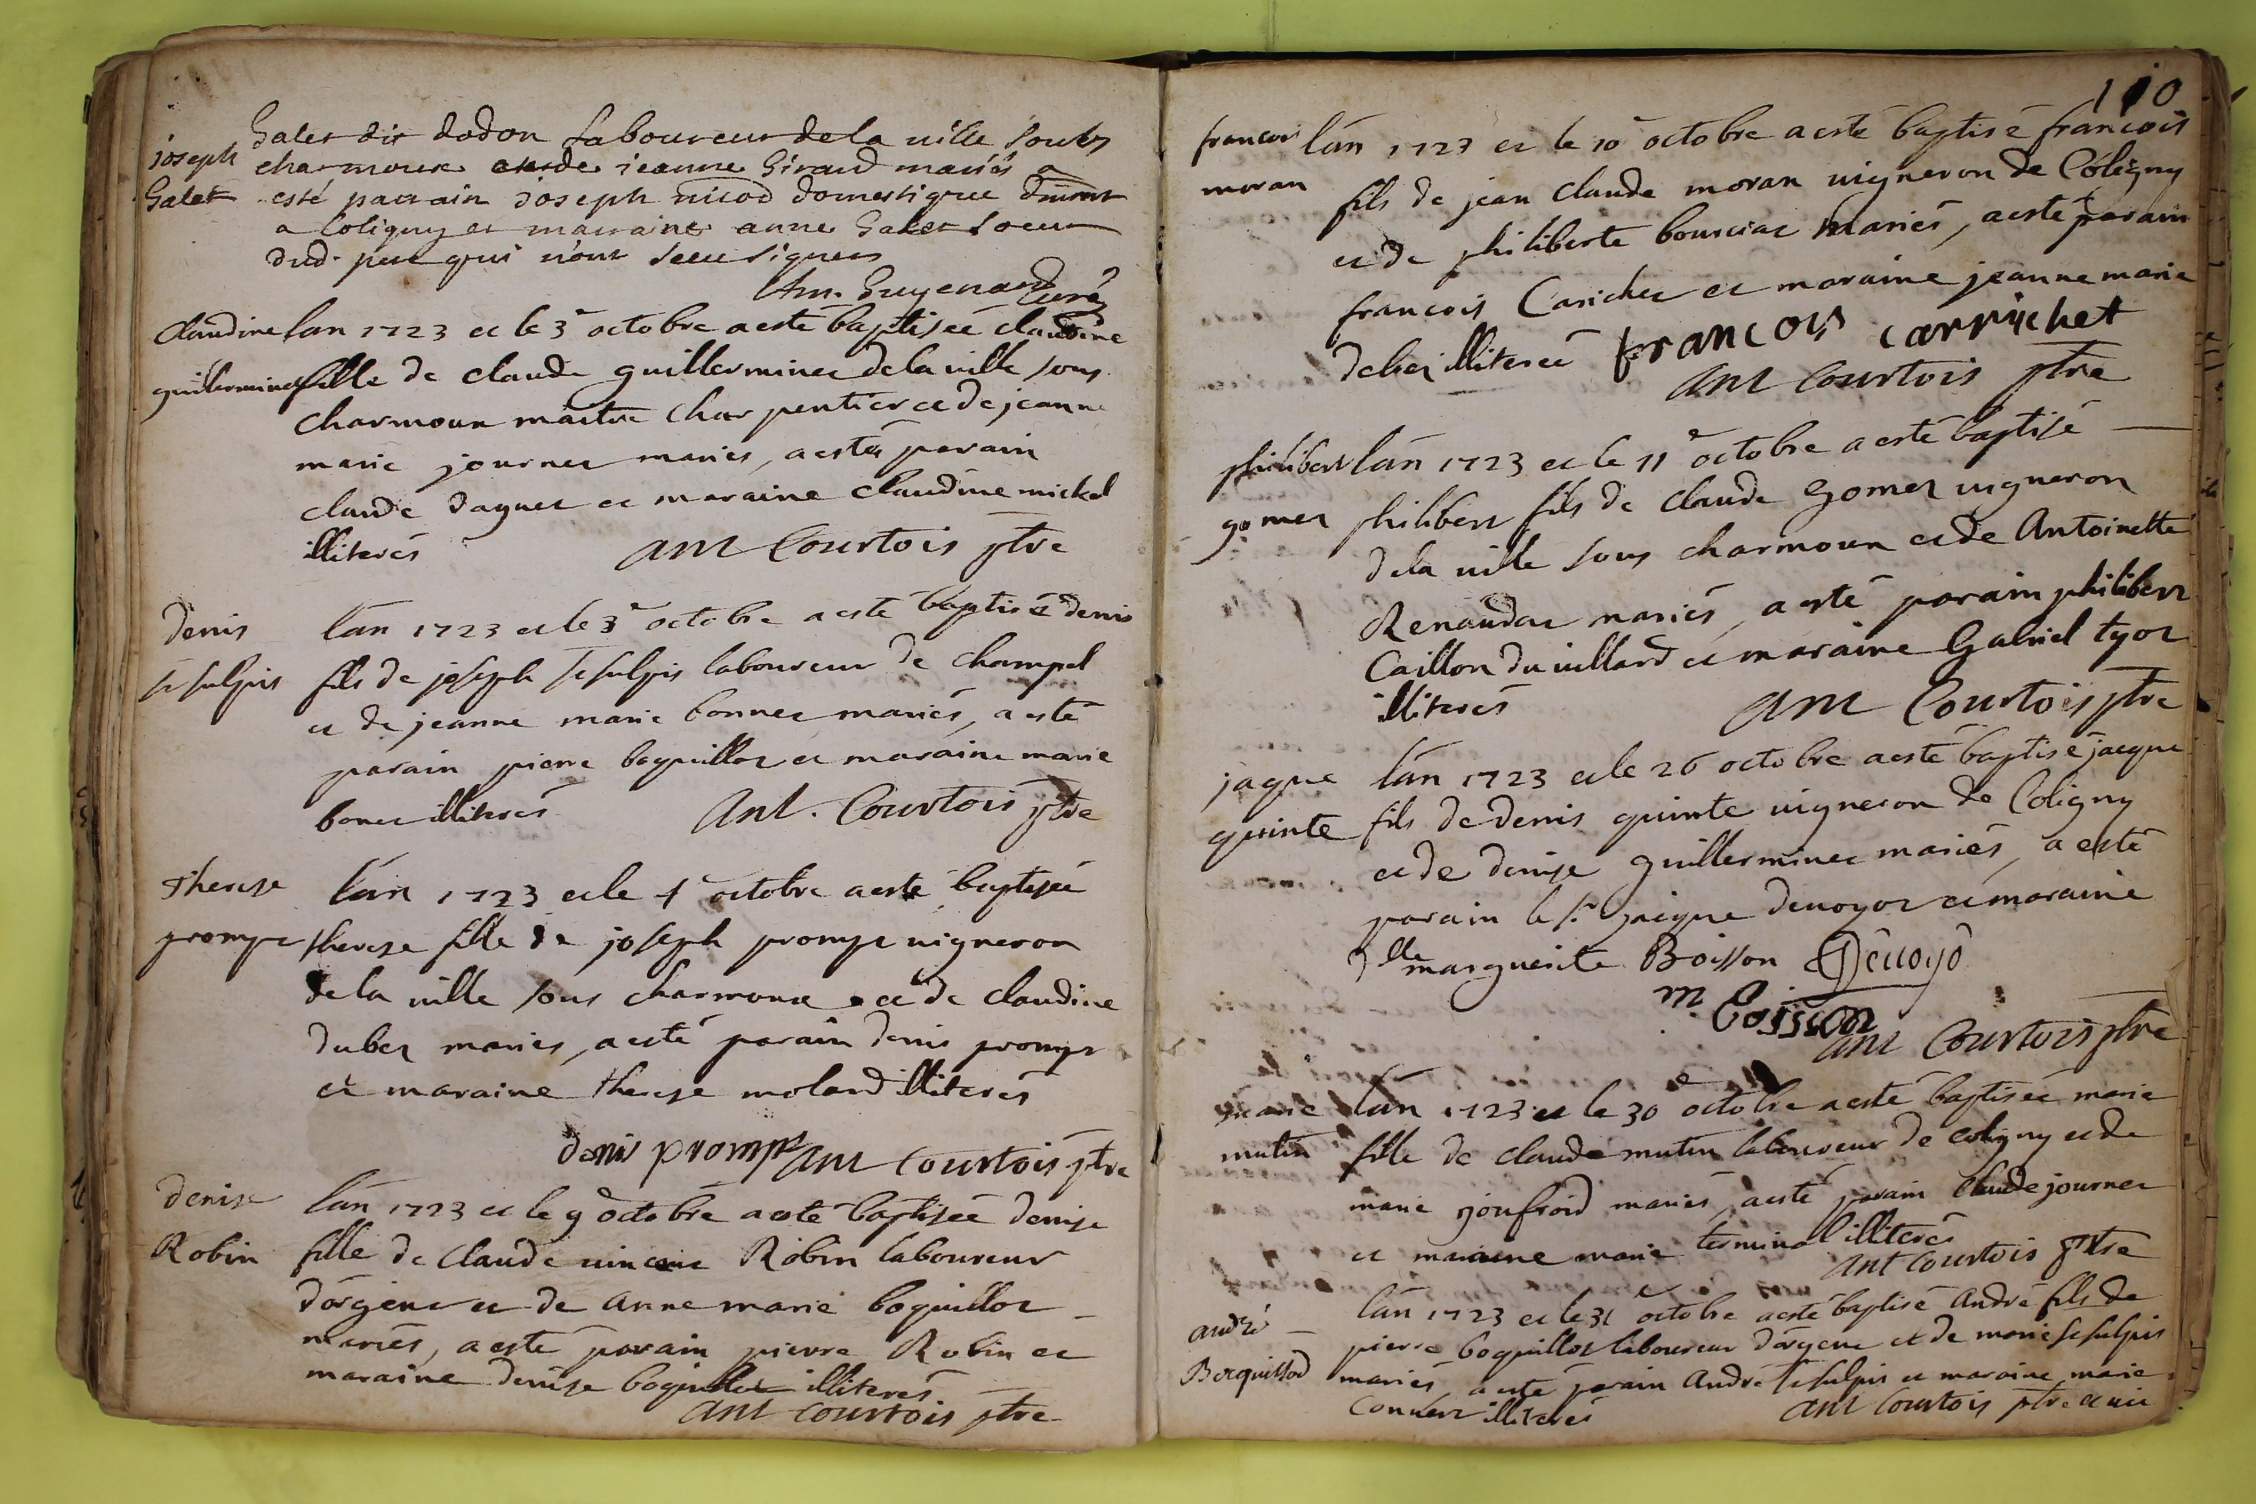 joseph
Galet
Galet dit dodon laboureur de la ville soubs
charmoux et de jeanne Giraud mariés a
esté parrain joseph nicod domestique
a Coligny et marraine anne Galet soeur
dud. pere qui n'ont sceu signer
Am. Guyenard Curé
Claudine
guillerminet
lan 1723 et le 3e octobre a esté baptisée claudine
fille de claude guillerminet de la ville sous
charmoux maitre charpentier et de jeanne
marie journet mariés, a esté parain
claude daguet et maraine claudine michel
illiterés
Ant Courtois ptre
denis
l'an 1723 et le 3e octobre a esté baptisé denis
fils de joseph laboureur de champel
et de jeanne marie bonnet mariés, a esté
parain pierre boquillot et maraine marie
bonet illiterés
Ant. Courtois ptre
Therese
prompt
l'an 1723 et le 4e octobre a esté baptisée
therese fille de joseph prompt vigneron
de la ville sous charmoux et de claudine
dubez mariés, a esté parain denis prompt
et maraine therese molard illiterés
denis prompt
Ant Courtois ptre
denise
Robin
l'an 1723 et le 9 octobre a esté baptisée denise
fille de claude vincent Robin laboureur
d'orgent et de anne marie boquillot
mariés, a esté parain pierre Robin et
maraine denise boquillot illiterés
Ant Courtois ptre
110
francois
moran
l'an 1723 et le 10e octobre a esté baptisé francois
fils de jean claude moran vigneron de Coligny
et de philiberte bouriat mariés, a esté parain
francois Carichet et maraine jeanne marie
illiterée
francois carrichet
Ant Courtois ptre
philibert
gomet
l'an 1723 et le 11e octobre a esté baptisé
philibert fils de claude gomet vigneron
de la ville sous charmoux et de Antoinette
Renaudat mariés, a esté parain philibert
Caillon du villard et maraine Gabriel tyot
illiterés
Ant Courtois ptre
jaque
quinte
l'an 1723 et le 26 octobre a esté baptisé jacque
fils de denis quinte vigneron de Coligny
et de denise guillerminet mariés, a esté
parain le sr jacque denoyot et maraine
dlle marguerite Boisson
m Boisson
Ant Courtois ptre
marie
mutin
l'an 1723 et le 30e octobre a esté baptisée marie
fille de claude mutin laboureur de coligny et de
marie joufroid mariés, a esté parain claude journet
et maraine marie terminal illiterés
Ant Courtois ptre
andré
Bocquillod
l'an 1723 et le 31e octobre a esté baptisé André fils de
pierre boquillot laboureur d'orgent et de marie
mariés, a esté parain André et maraine marie
illiterés
Ant Courtois ptre et vic